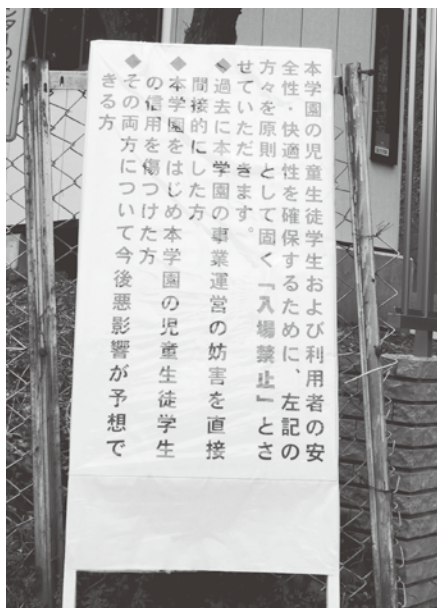 本学園の児童生徒学生および利用者の安
全性・快適性を確保するために、左記の
方々を原則として固く『入場禁止』とさ
せていただきます。
◆過去に本学園の事業運営の妨害を直接
間接的にした方
◆本学園をはじめ本学園の児童生徒学生
の信用を傷つけた方
◆その両方について今後悪影響が予想で
きる方